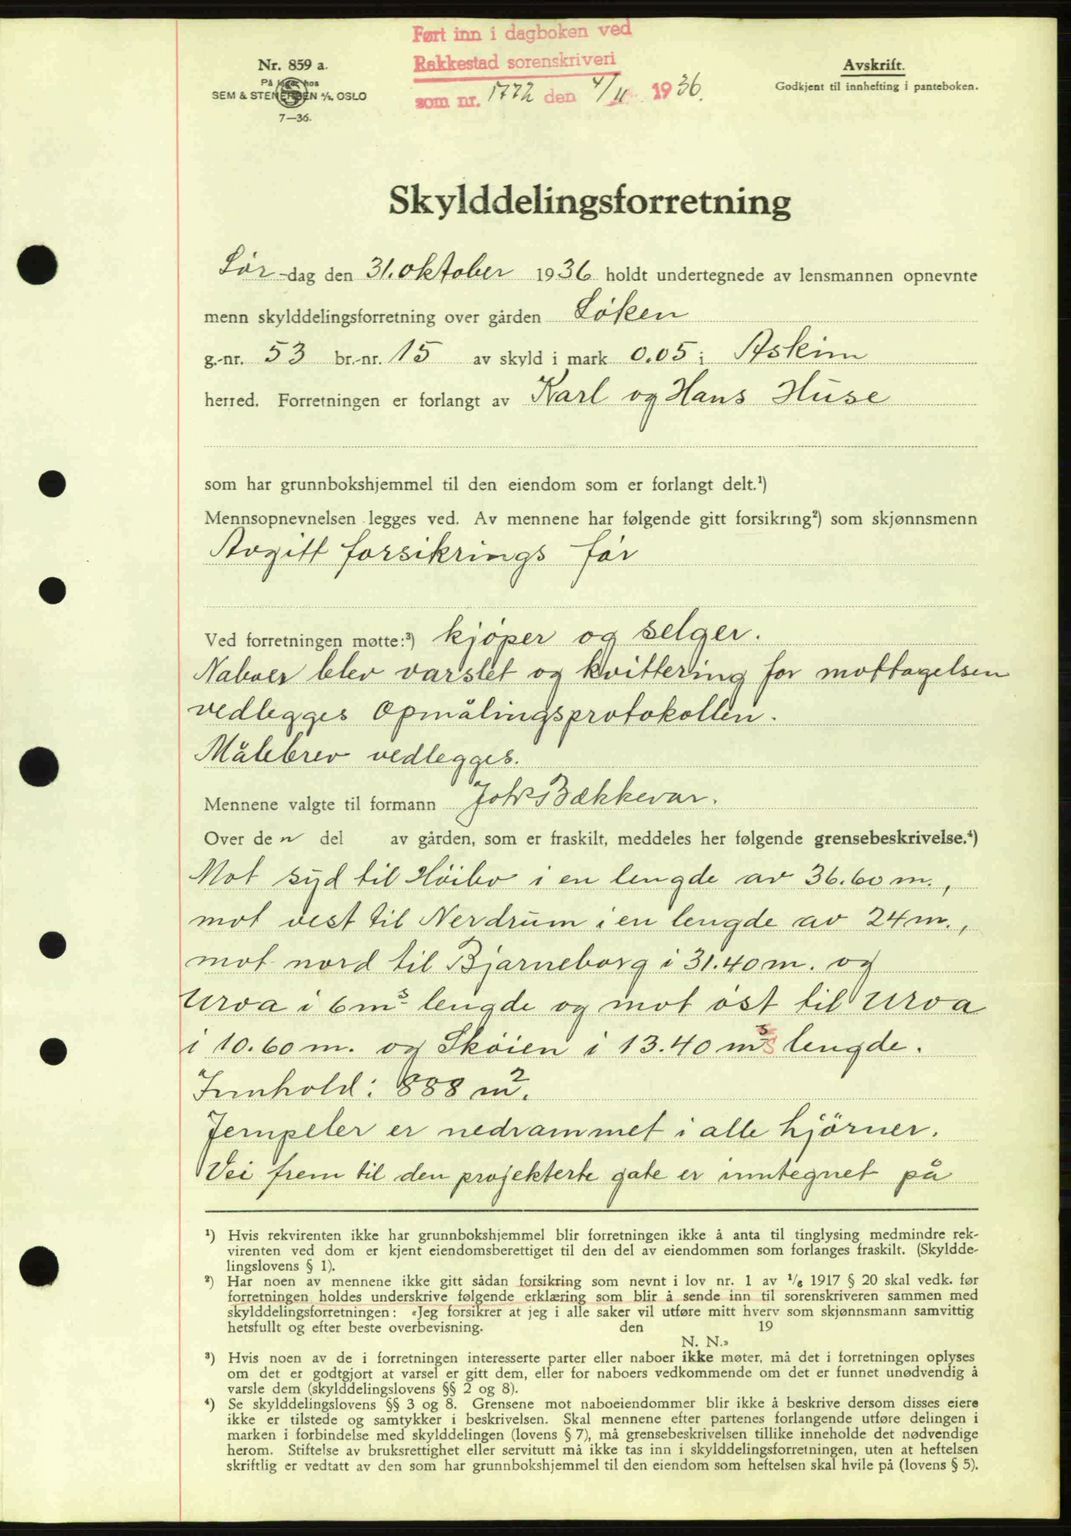 Nr. 859 a.
På lager hos
SEM & STENERSEN A/S, OSLO
7—36.
Ført inn i dagboken ved
Rakkestad sorenskriveri
som nr. 1772 den 4/11 1936.
Avskrift.
Godkjent til innhefting i panteboken.
Skylddelingsforretning
Lør-dag den 31. oktober 1936 holdt undertegnede av lensmannen opnevnte
menn skylddelingsforretning over gården Løken
g.-nr. 53 br.-nr. 15 av skyld i mark 0.05 i Askim
herred. Forretningen er forlangt av Karl og Hans Huse
som har grunnbokshjemmel til den eiendom som er forlangt delt.¹)
Mennsopnevnelsen legges ved. Av mennene har følgende gitt forsikring²) som skjønnsmenn
Avgitt forsikrings før
Ved forretningen møtte:³) kjøper og selger.
Naboer blev varslet og kvittering for mottagelsen
vedlegges Opmålingsprotokollen.
Målebrev vedlegges.
Mennene valgte til formann Joh. Bækkevar.
Over den del av gården, som er fraskilt, meddeles her følgende grensebeskrivelse.⁴)
Mot syd til Höibo i en lengde av 36.60 m.,
mot vest til Nerdrum i en lengde av 24 m.,
mot nord til Bjarneborg i 31.40 m. og
Urva i 6 ms lengde og mot øst til Urva
i 10.60 m. og Skøien i 13.40 ms lengde.
Innhold: 888 m².
Jernpeler er nedrammet i alle hjörner.
Vei frem til den projekterte gate er inntegnet på
¹) Hvis rekvirenten ikke har grunnbokshjemmel blir forretningen ikke å anta til tinglysing medmindre rek-
virenten ved dom er kjent eiendomsberettiget til den del av eiendommen som forlanges fraskilt. (Skyldde-
lingslovens § 1).
²) Har noen av mennene ikke gitt sådan forsikring som nevnt i lov nr. 1 av 1/6 1917 § 20 skal vedk. før
forretningen holdes underskrive følgende erklæring som blir å sende inn til sorenskriveren sammen med
skylddelingsforretningen: «Jeg forsikrer at jeg i alle saker vil utføre mitt hverv som skjønnsmann samvittig
hetsfullt og efter beste overbevisning. den 19
N. N.»
³) Hvis noen av de i forretningen interesserte parter eller naboer ikke møter, må det i forretningen oplyses
om det er godtgjort at varsel er gitt dem, eller for naboers vedkommende om det er funnet unødvendig å
varsle dem (skylddelingslovens §§ 2 og 8).
⁴) Se skylddelingslovens §§ 3 og 8. Grensene mot naboeiendommer blir ikke å beskrive dersom disses eiere
ikke er tilstede og samtykker i beskrivelsen. Skal mennene efter partenes forlangende utføre delingen i
marken i forbindelse med skylddelingen (lovens § 7), må grensebeskrivelsen tillike inneholde det nødvendige
herom. Stiftelse av bruksrettighet eller servitutt må ikke tas inn i skylddelingsforretningen, uten at heftelsen
skriftlig er vedtatt av den som har grunnbokshjemmel til den eiendom som heftelsen skal hvile på (lovens § 5).